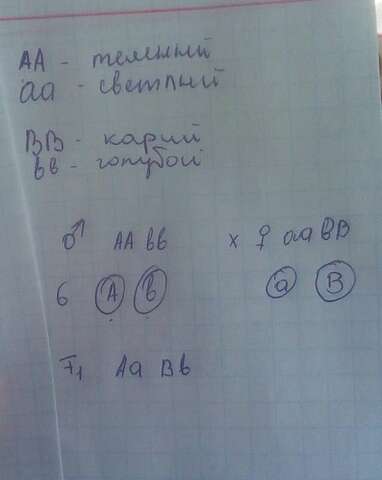 AA - темный
aa - светлый
BB - карий
вв - голубой
♂ AA вв x ♀ aa BB
б A в a B
F1 Aa Bв